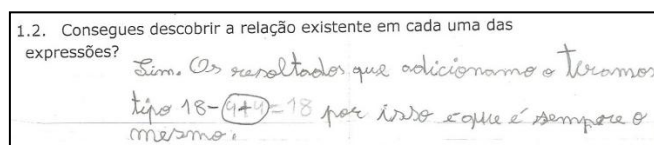 1.2. Consegues descobrir a relação existente em cada uma das
expressões?
Sim. Os resoltados que adicionamo o teramos
tipo 18-4+4=18 por isso e que é sempere o
mesmo.